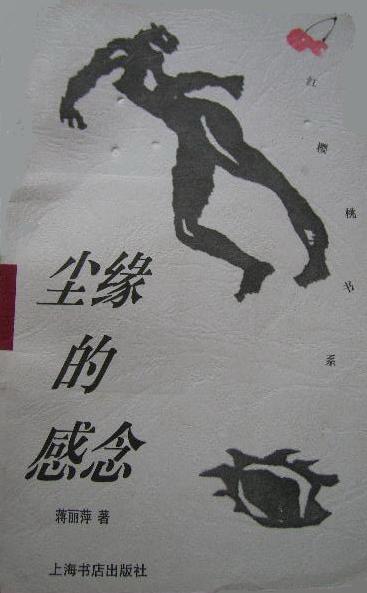 红樱桃书系
尘缘
的
感念
蒋丽萍 著
上海书店出版社